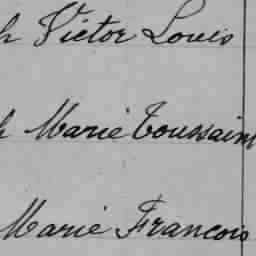 h Victor Louis
h Marie Toussaint
Marie Francois